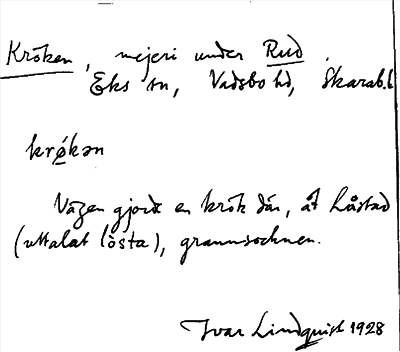 Kröken, mejeri under Rud
Eks sn, Vadsbo hd, Skarab. l
krǿkən
Vägen gjorde en krok där, åt Låstad
(uttalat lösta), grannsocknen.
Ivar Lindquist 1928